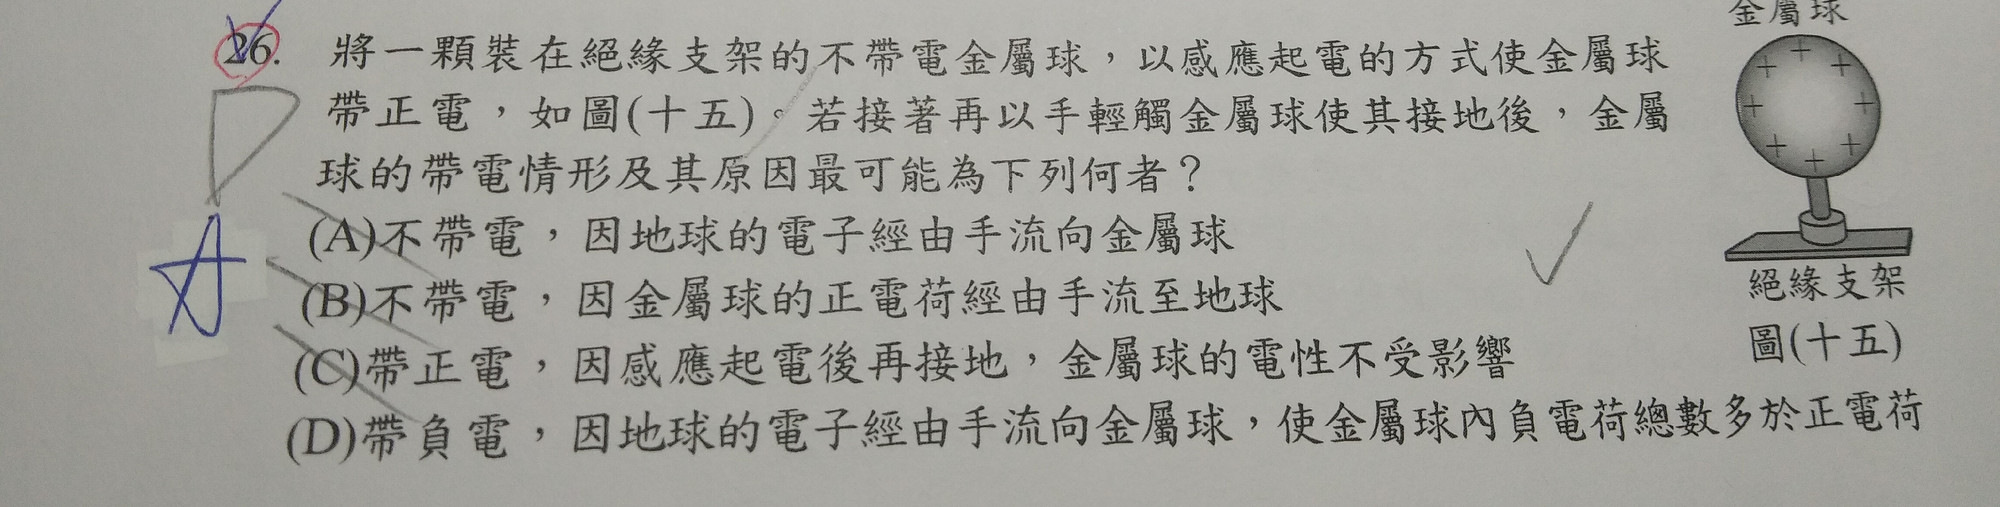 金屬球
26. 將一顆裝在絕緣支架的不帶電金屬球，以感應起電的方式使金屬球
帶正電，如圖(十五)。若接著再以手輕觸金屬球使其接地後，金屬
球的帶電情形及其原因最可能為下列何者？
(A)不帶電，因地球的電子經由手流向金屬球
(B)不帶電，因金屬球的正電荷經由手流至地球
(C)帶正電，因感應起電後再接地，金屬球的電性不受影響
(D)帶負電，因地球的電子經由手流向金屬球，使金屬球內負電荷總數多於正電荷
D
A
+ + +
+ +
+ + +
絕緣支架
圖(十五)